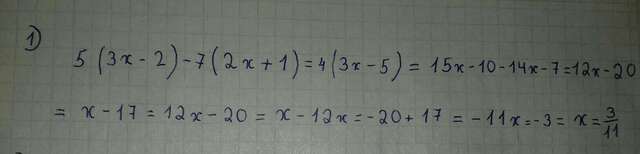 1)
5(3x-2)-7(2x+1)=4(3x-5)=15x-10-14x-7=12x-20
=x-17=12x-20=x-12x=-20+17=-11x=-3=x=3/11